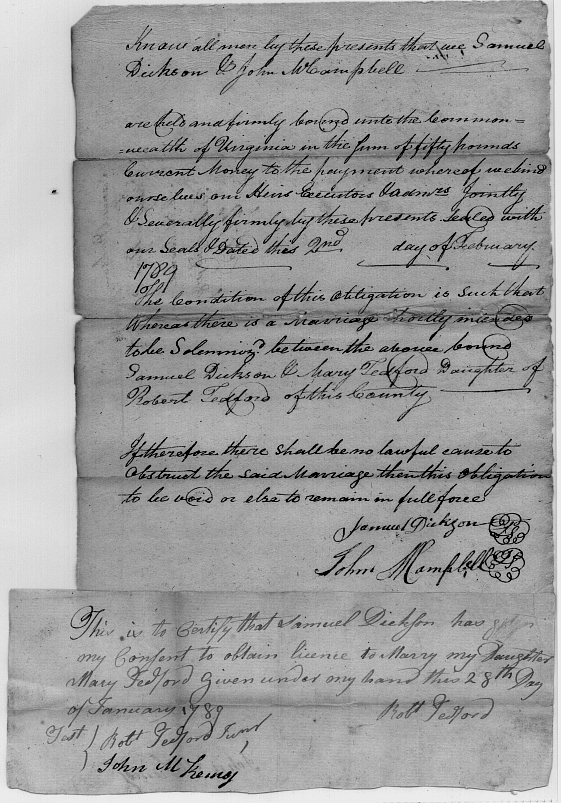 Know all men by these presents that we Samuel
Dickson & John McCampbell
are held and firmly bound unto the Common=
=wealth of Virginia in the Sum of fifty pounds
Current Money to the payment whereof we bind
ourselves our Heirs Executors & admrs Jointly
& Severally firmly by these presents Sealed with
our Seals & Dated this 2nd day of February
1789
The Condition of this Obligation is Such that
Whereas there is a Marriage Shortly intended
to be Solemniz.d between the above bound
Samuel Dickson & Mary Tedford Daughter of
Robert Tedford of this County
If therefore there Shall be no lawful cause to
Obstruct the Said Marriage then this Obligation
to be void or else to remain in full force
Samuel Dickson
John McCampbell
This is to Certify that Samuel Dickson has
my Consent to obtain licence to Marry my Daughter
Mary Tedford Given under my hand this 28th Day
of January 1789
Robt Tedford
Test
Robt Tedford Junr
John M